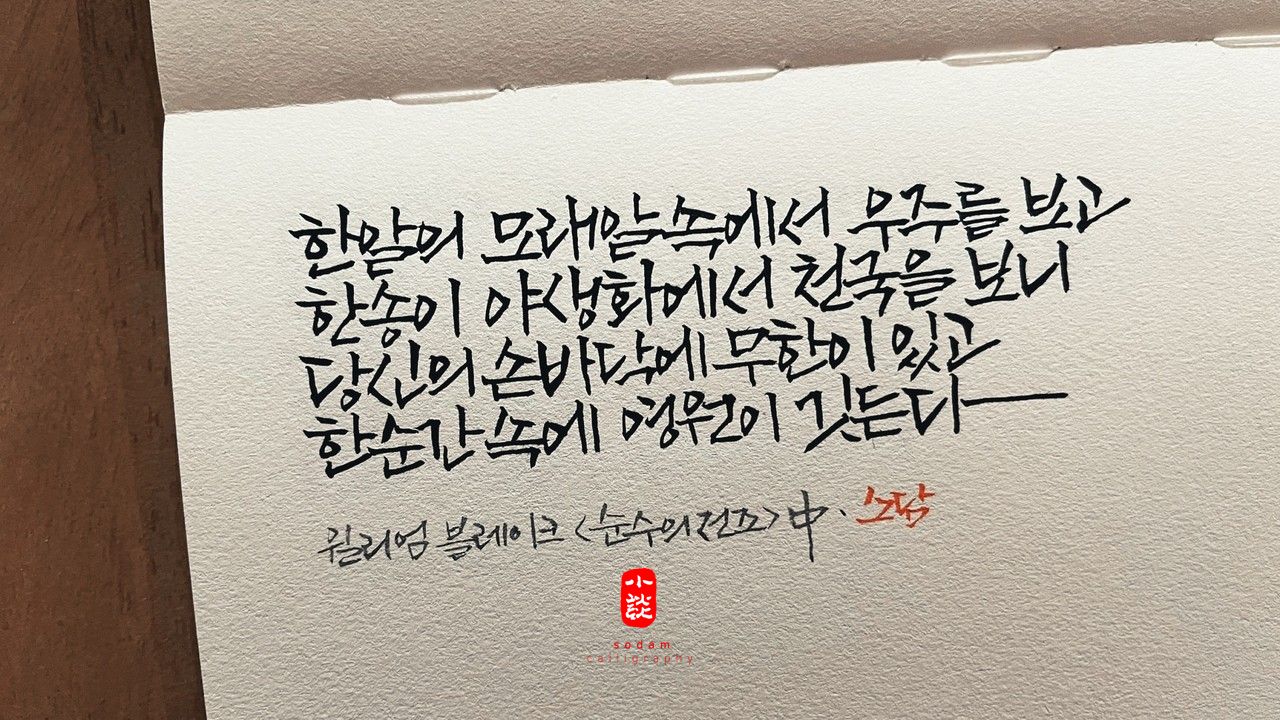 한알의 모래알 속에서 우주를 보고
한송이 야생화에서 천국을 보니
당신의 손바닥에 무한이 있고
한순간 속에 영원이 깃든다
윌리엄 블레이크 <순수의 전조> 中. 소담
小談
sodam
calligraphy